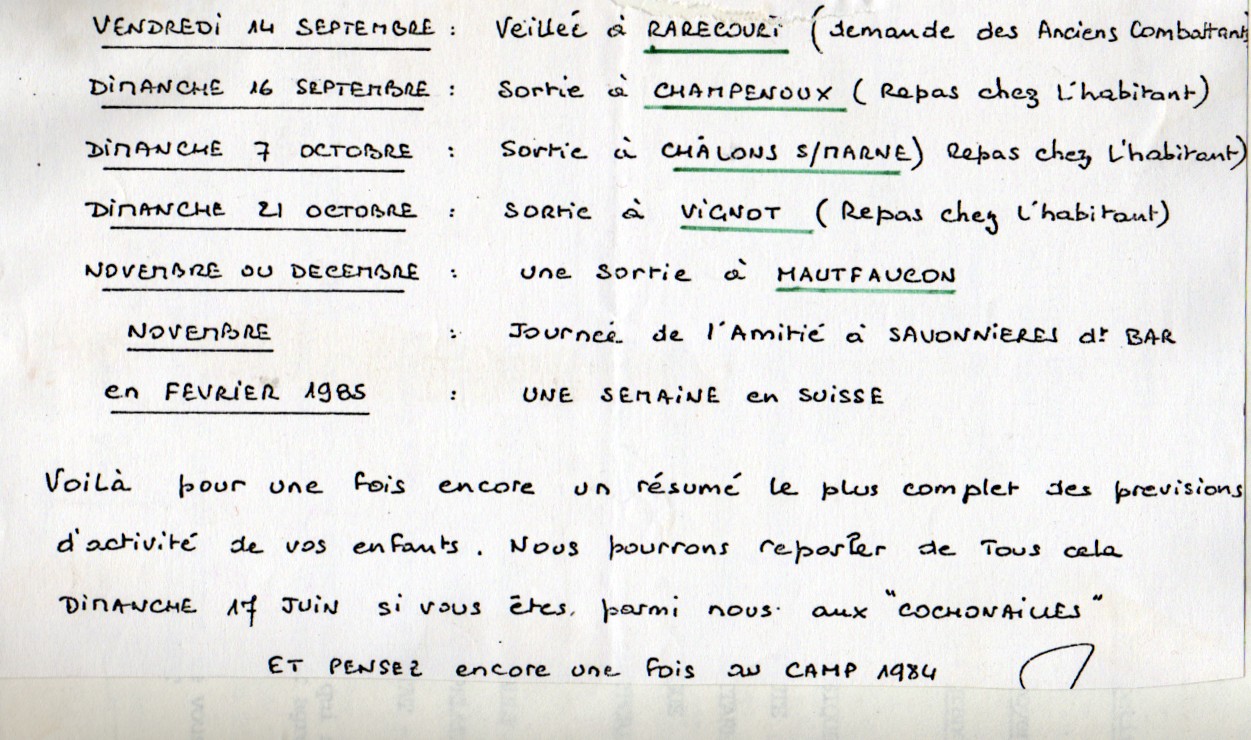 VENDREDI 14 SEPTEMBRE : Veilleé à RARECOURT (demande des Anciens Combattants
DIMANCHE 16 SEPTEMBRE : Sortie à CHAMPENOUX (Repas chez L'habitant)
DIMANCHE 7 OCTOBRE : Sortie à CHÂLONS S/MARNE) Repas chez L'habitant)
DIMANCHE 21 OCTOBRE : SORtie à VIGNOT (Repas chez L'habitant)
NOVEMBRE OU DECEMBRE : une Sortie à HAUTFAUCON
NOVEMBRE : Journeé de l'Amitié à SAVONNIERES dt BAR
en FEVRIER 1985 : UNE SEMAINE en SUISSE
Voilà pour une fois encore un résumé le plus complet des previsions
d'activité de vos enfants. Nous pourrons reparler de Tous cela
DIMANCHE 17 JUIN si vous êtes. parmi nous. aux "COCHONAILLES"
ET PENSEZ encore une fois au CAMP 1984